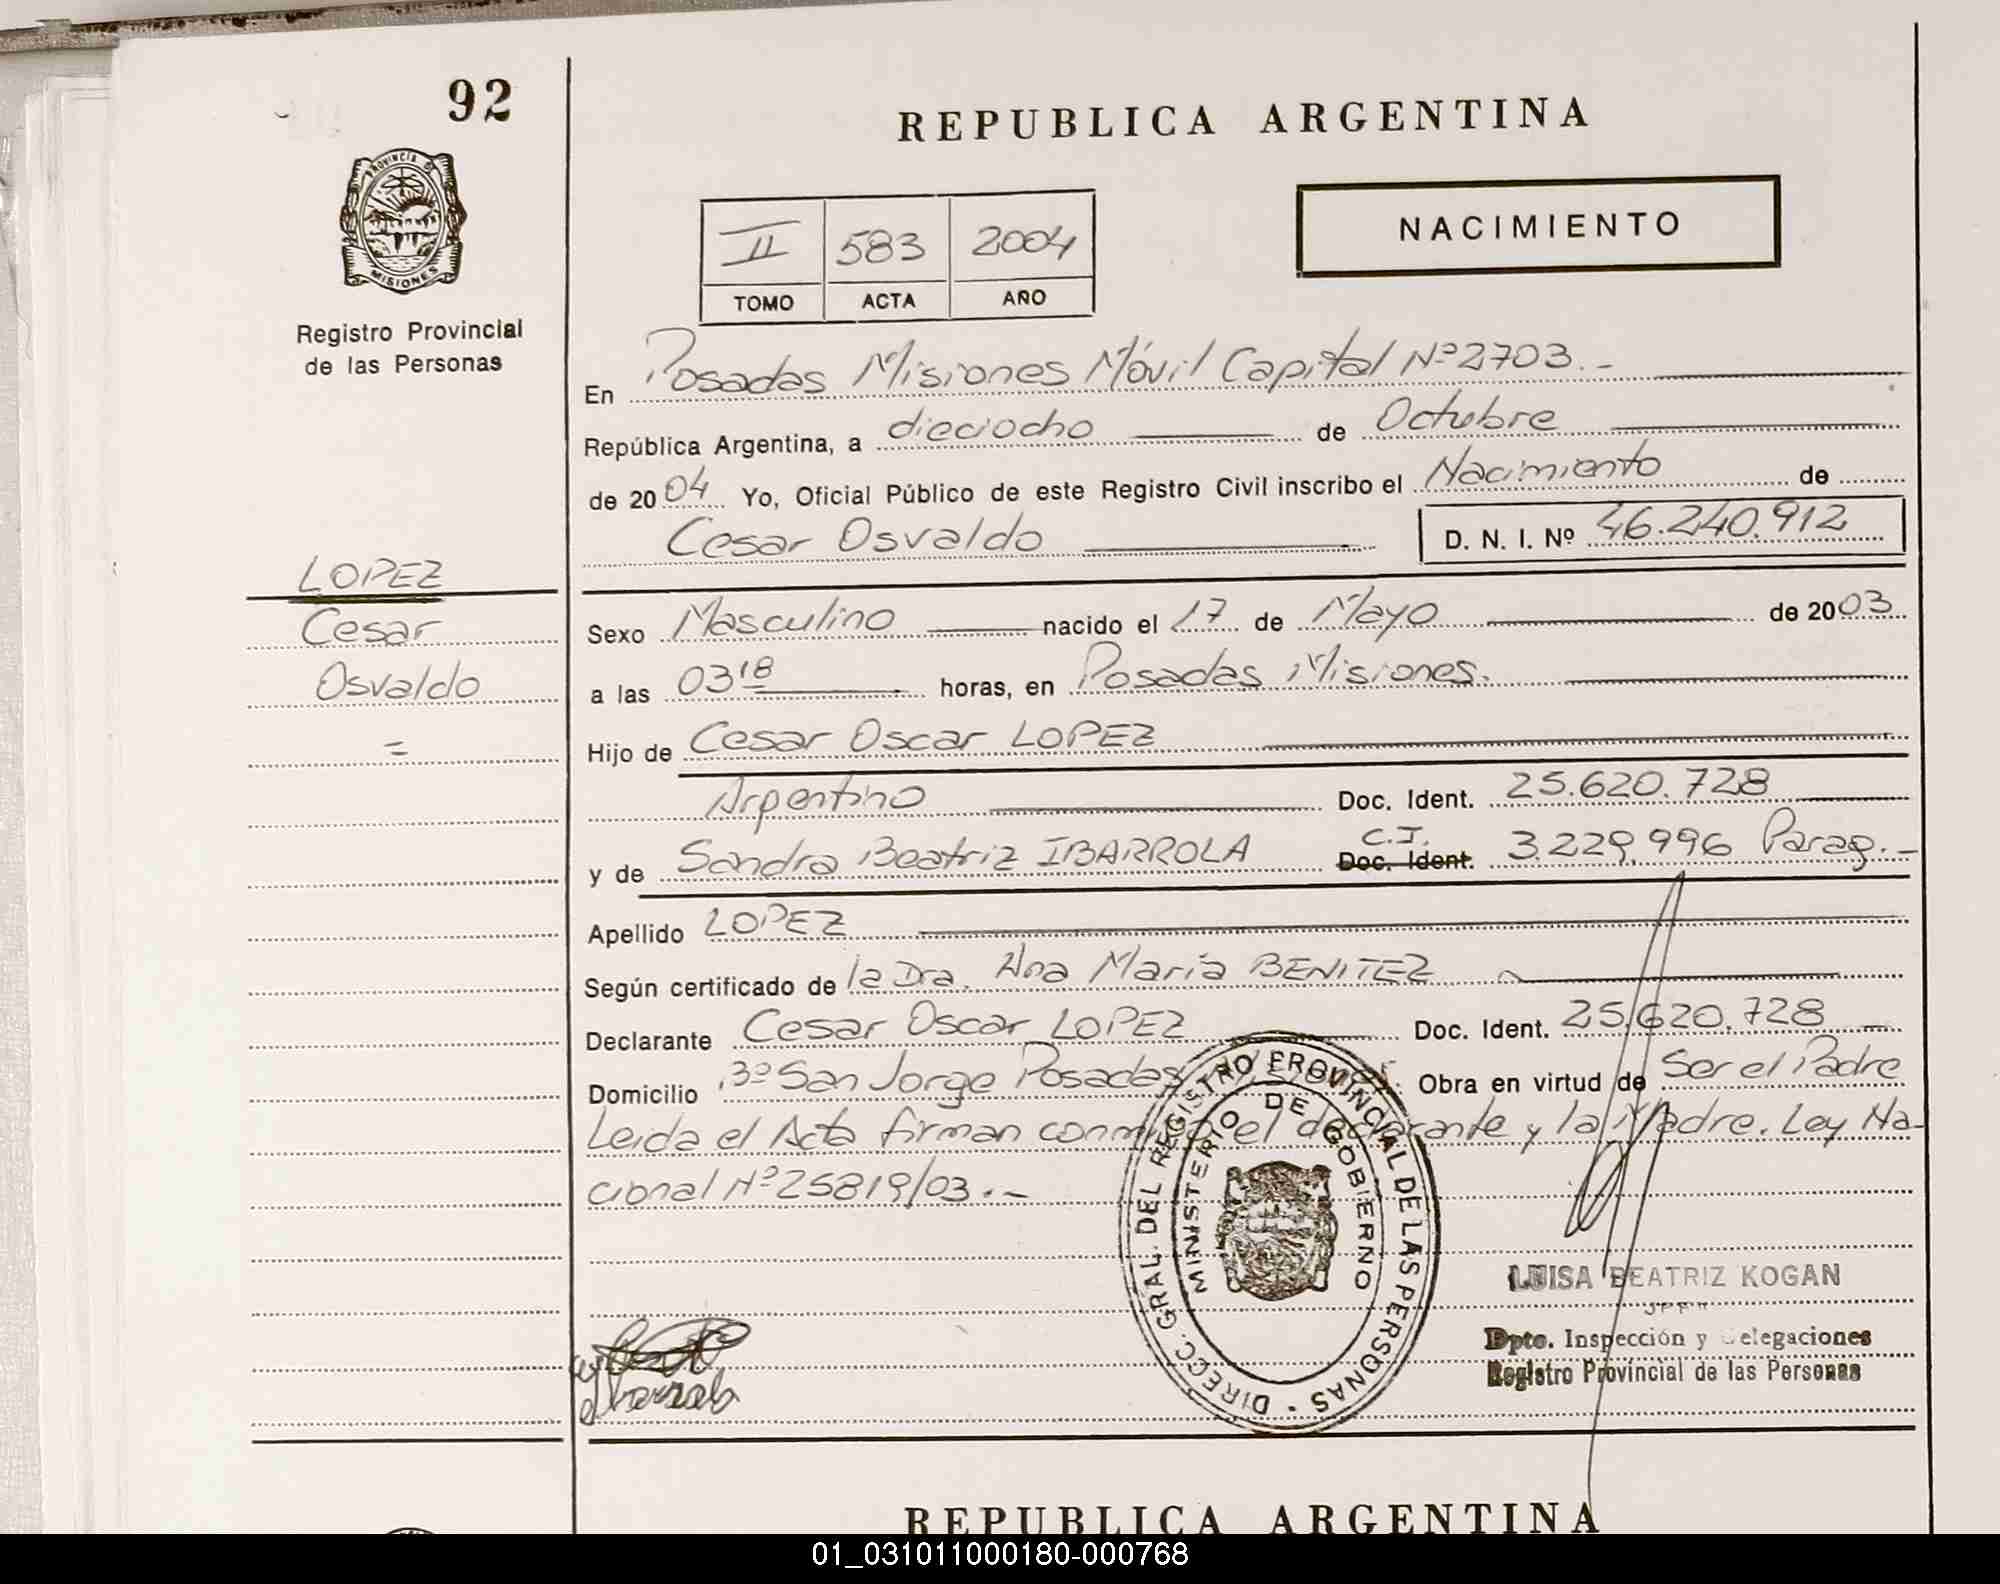 92
PROVINCIA DE
MISIONES
Registro Provincial
de las Personas
LOPEZ
Cesar
Osvaldo
=
REPUBLICA ARGENTINA
NACIMIENTO
II 583 2004
TOMO ACTA AÑO
En Posadas Misiones Móvil Capital Nº 2703.-
República Argentina, a dieciocho de Octubre
de 2004 Yo, Oficial Público de este Registro Civil inscribo el Nacimiento de
Cesar Osvaldo D. N. I. Nº 46.240.912
Sexo Masculino nacido el 17 de Mayo de 2003
a las 03 18 horas, en Posadas Misiones.
Hijo de Cesar Oscar LOPEZ
Argentino Doc. Ident. 25.620.728
y de Sandra Beatriz IBARROLA C.I. Doc. Ident. 3.229.996 Parag.-
Apellido LOPEZ
Según certificado de la Dra. Ana María BENITEZ
Declarante Cesar Oscar LOPEZ Doc. Ident. 25.620.728
Domicilio Bº San Jorge Posadas Obra en virtud de Ser el Padre
Leida el Acta firman conmigo el declarante y la Madre. Ley Na-
cional Nº 25819/03.-
DIRECC. GRAL. DEL REGISTRO PROVINCIAL DE LAS PERSONAS
MINISTERIO DE GOBIERNO
LUISA BEATRIZ KOGAN
Dpto. Inspección y Delegaciones
Registro Provincial de las Personas
REPUBLICA ARGENTINA
01_031011000180-000768